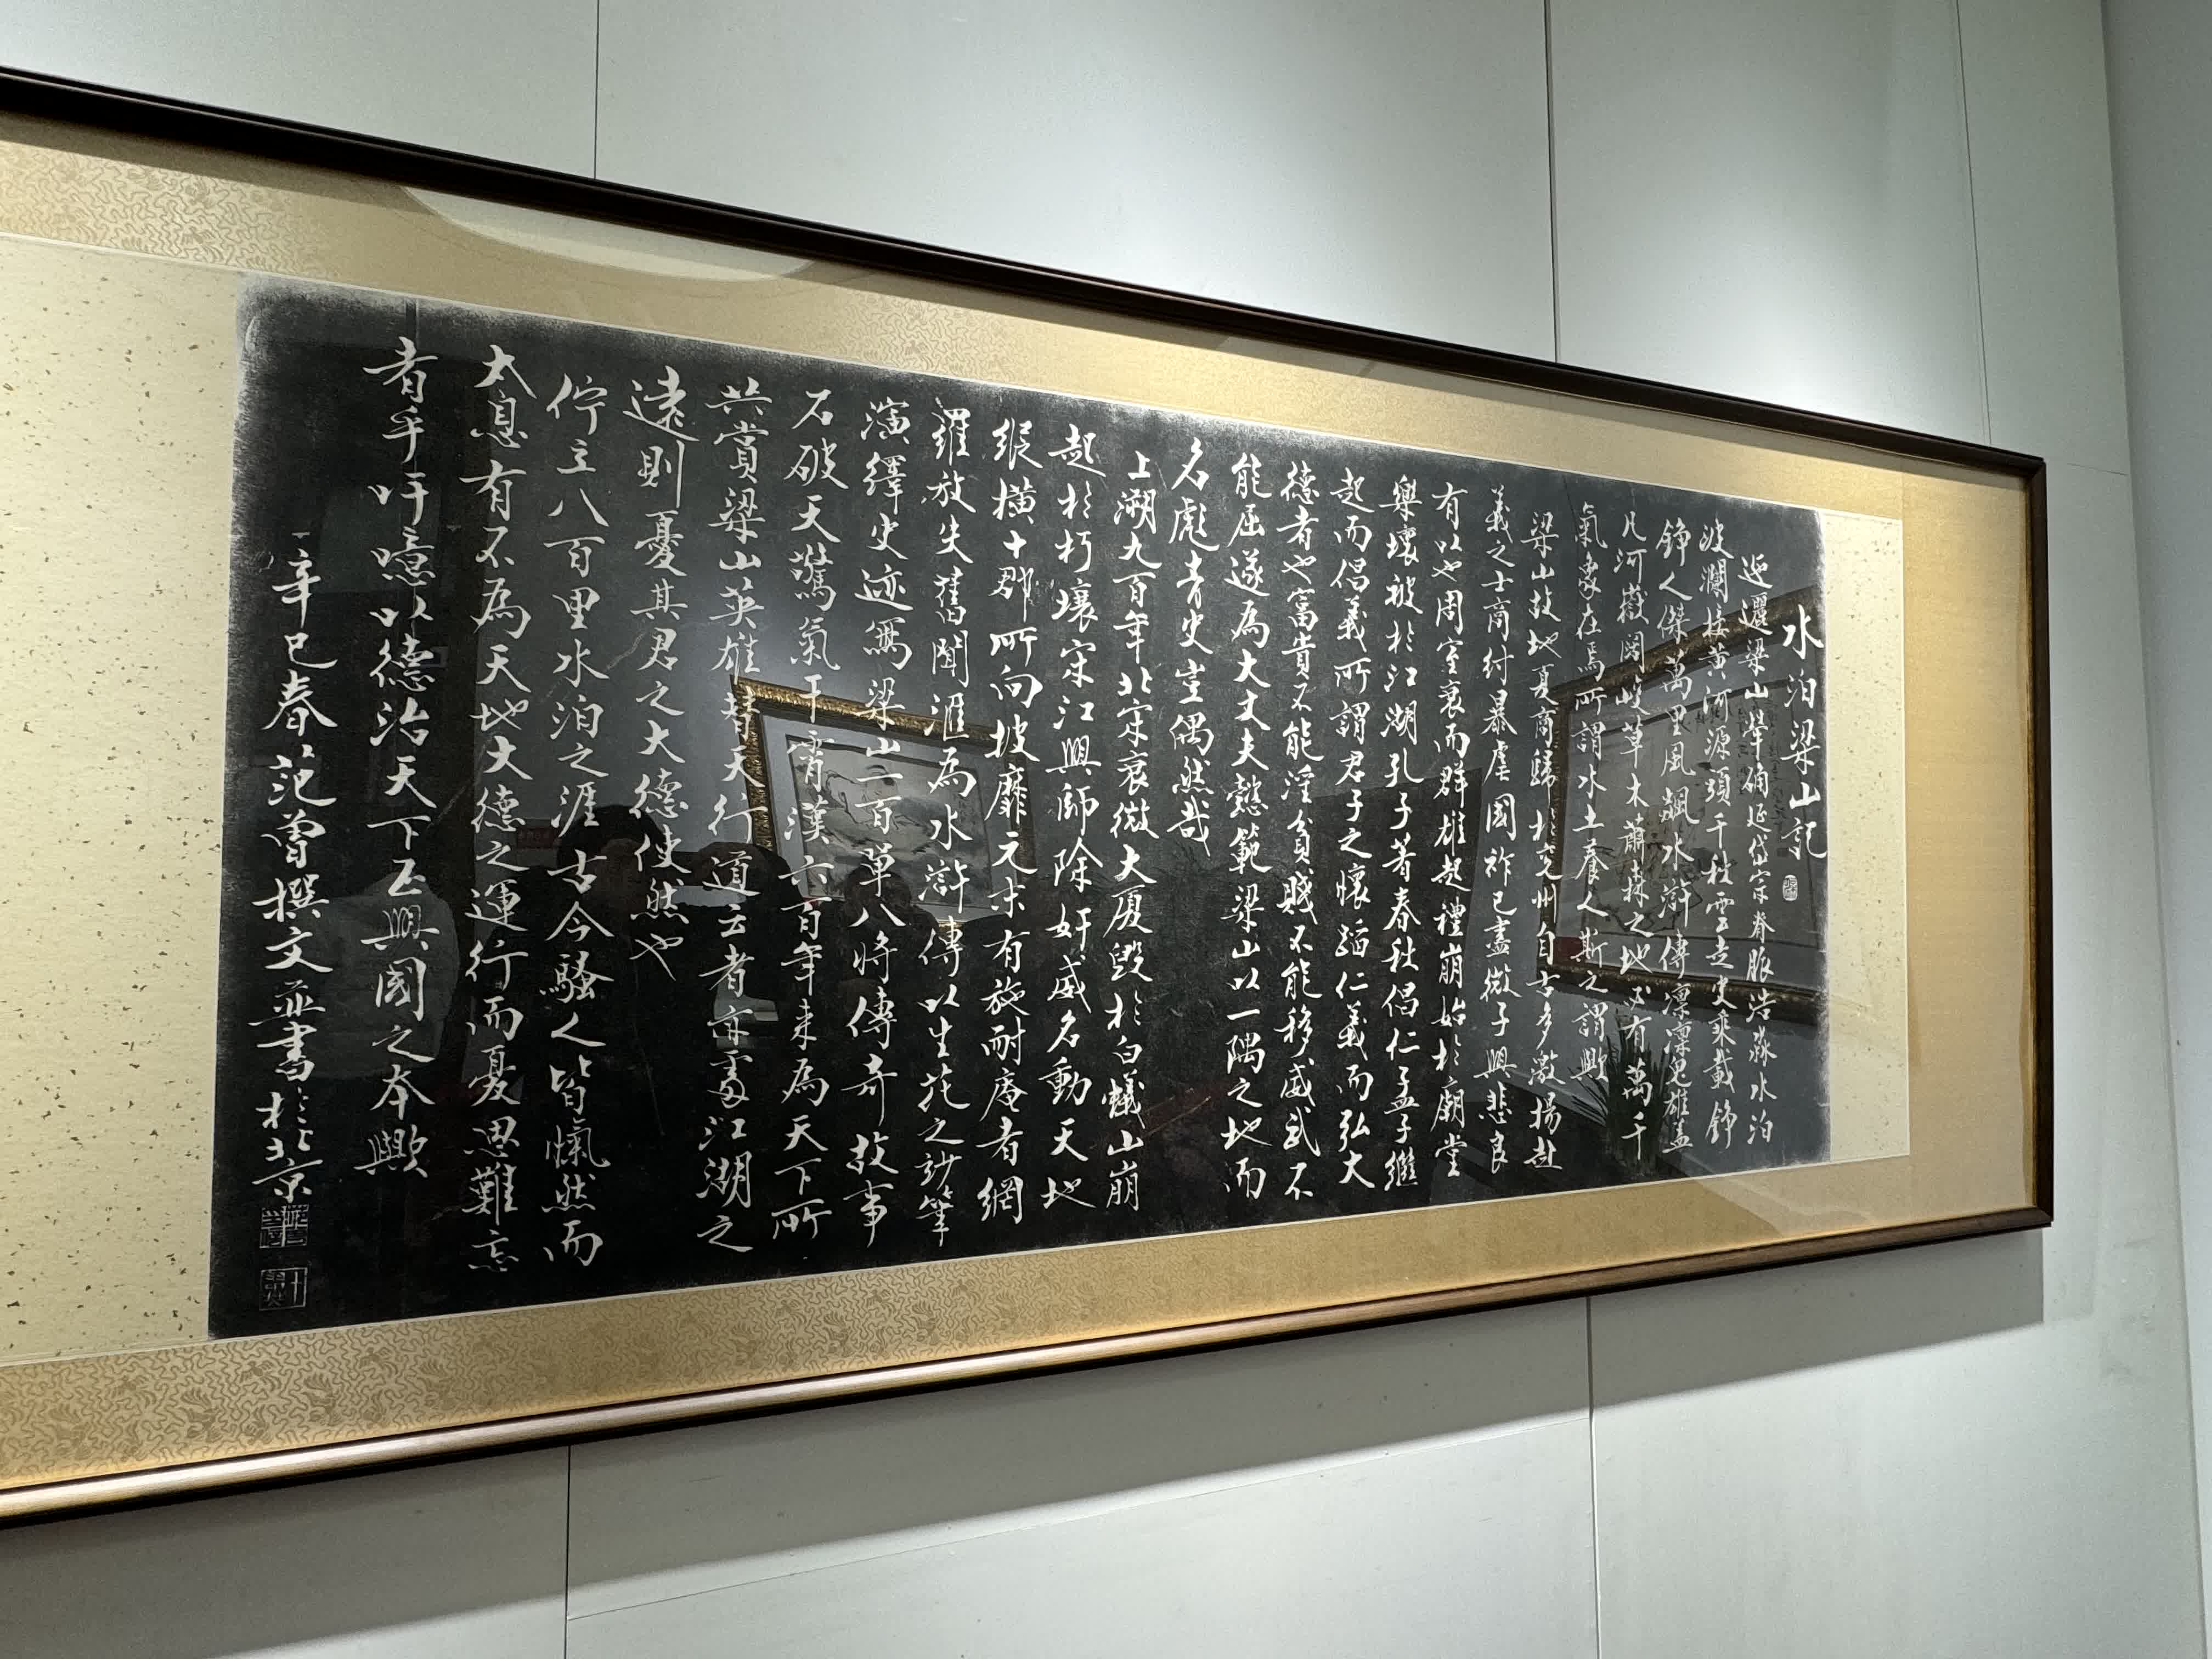 水泊梁山記
迤邐梁山犖确延岱宗脊脈浩淼水泊
波瀾接黄河源頭千秋雲走史乘載錚
錚人傑萬里風飆水滸傳凛凛鬼雄蓋
凡河嶽闊峻草木蕭森之地必有萬千
氣象在焉所謂水土養人斯之謂歟
梁山故地夏商歸於兗州自古多激揚赴
義之士商紂暴虐國祚已盡微子興悲良
有以也周室衰而群雄起禮崩始於廟堂
樂壞被於江湖孔子著春秋倡仁孟子繼
起而倡義所謂君子之懷蹈仁義而弘大
德者也富貴不能淫貧賤不能移威武不
能屈遂為大丈夫懿範梁山以一隅之地而
名彪青史豈偶然哉
上溯九百年北宋衰微大厦毀於白蟻山崩
起於朽壤宋江興師除奸威名動天地
縱横十郡所向披靡元末有施耐庵者網
羅放失舊聞滙為水滸傳以生花之妙筆
演繹史迹寫梁山一百單八將傳奇故事
石破天驚氣干霄漢六百年来為天下所
共賞梁山英雄替天行道云者亦處江湖之
遠則憂其君之大德使然也
佇立八百里水泊之涯古今騷人皆愾然而
太息有不為天地大德之運行而憂思難忘
者乎吁噫以德治天下正興國之本歟
辛巳春范曾撰文并書於北京